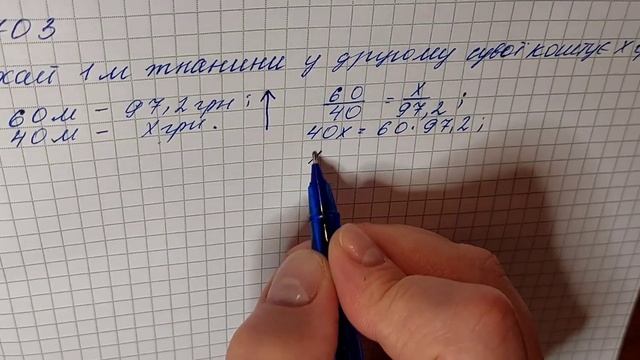 703
хай 1 м тканини у другому сувої коштує х
60 м – 97,2 грн;
40 м – х грн.
60/40 = x/97,2;
40x = 60·97,2;